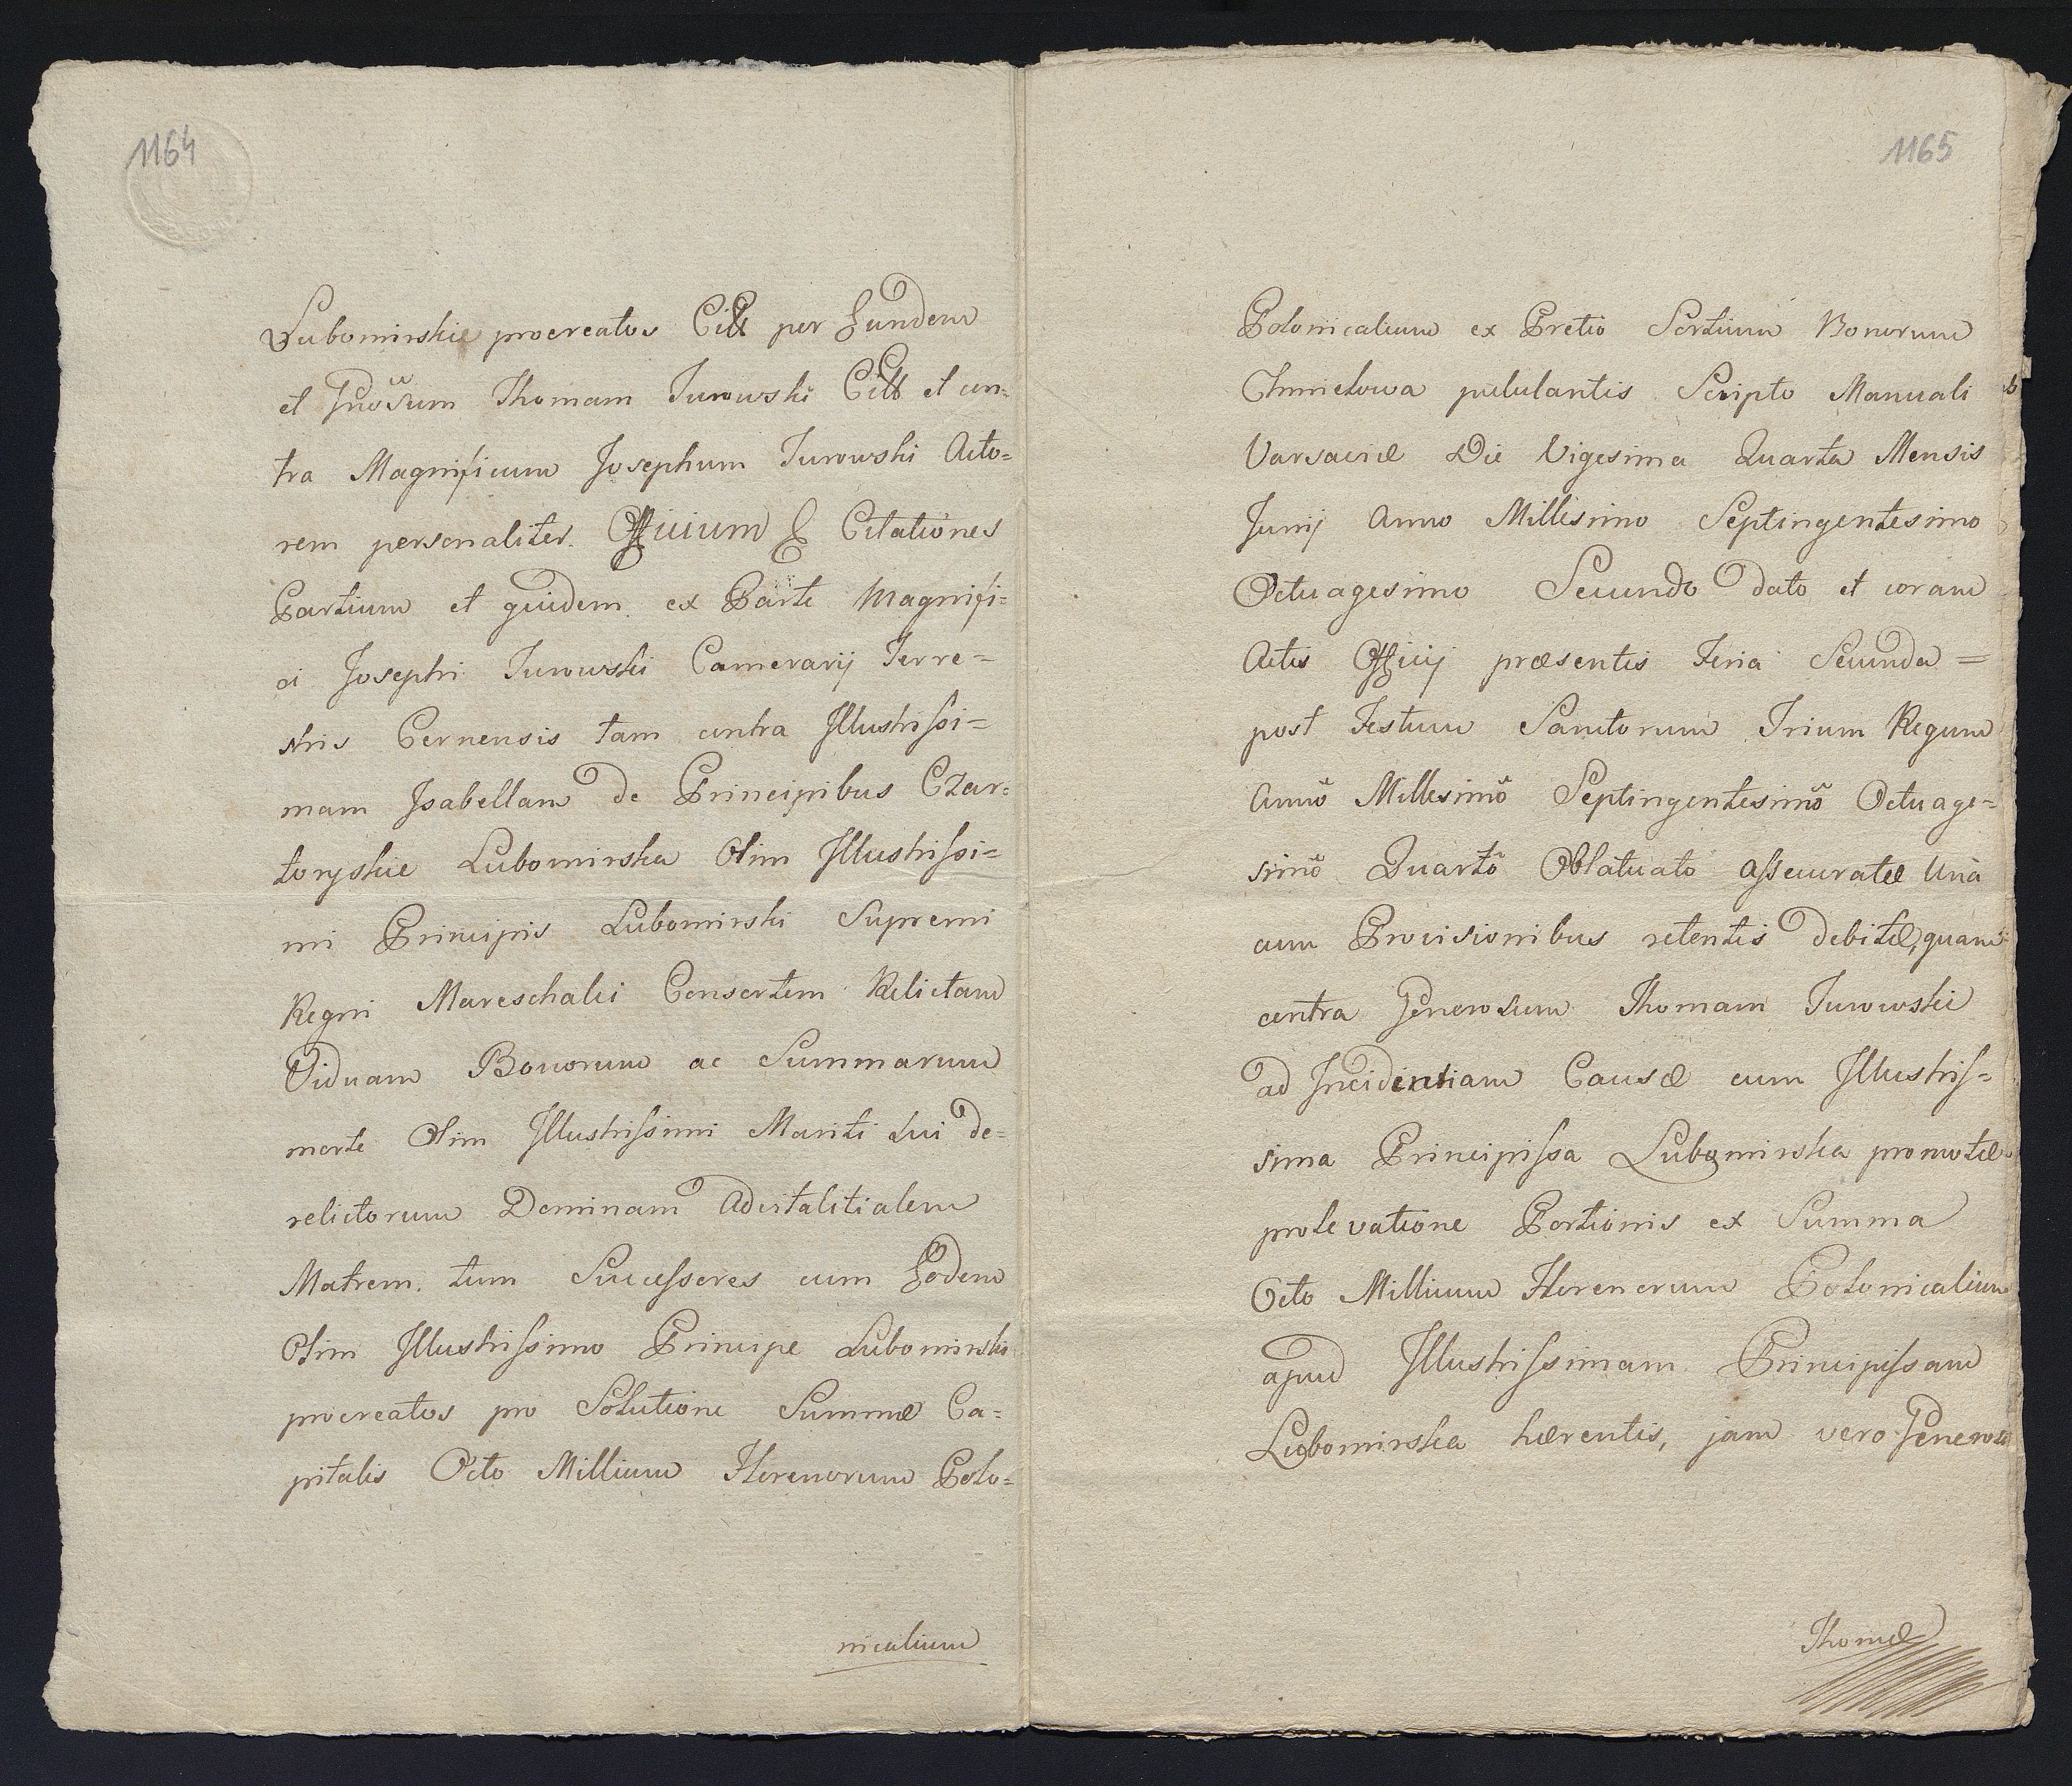 1164
Lubomirskie procreatos Citt per Eundem
et Gnösum Thomam Turowski Citt et con=
tra Magnificum Josephum Turowski Acto=
rem personaliter. Officium & Citationes
Partium et quidem ex Parte Magnifi=
ci Josephi Turowski Camerarij Terre=
stris Cernensis tam contra Illustrissi=
mam Isabellam de Principibus Czar=
toryskie Lubomirska Olim Illustrissi=
mi Principis Lubomirski Supremi
Regni Mareschalci Consortem Relictam
Viduam Bonorum ac Summarum
morte Olim Illustrissimi Mariti sui de=
relictorum Dominam Advitalitialem
Matrem. tum Successores cum Eodem
Olim Illustrissimo Principe Lubomirski
procreatos pro Solutione Summæ Ca=
pitalis Octo Millium Florenorum Polo=
nicalium
1165
Polonicalium ex Pretio Sortium Bonorum
Chmielowa pululantis Scripto Manuali
Varsaviæ Die Vigesima Quarta Mensis
Junij Anno Millesimo Septingentesimo
Octuagesimo Secundo dato et coram
Actis Officij præsentis Feria Secunda=
post Festum Sanctorum Trium Regum
Annõ Millesimõ Septingentesimõ Octuage=
simõ Quartõ Oblatuato assecuratæ Unà
cum Provisionibus retentis debitæ, quam
contra Generosum Thomam Turowski
ad Incidentiam Causæ cum Illustris=
sima Principissa Lubomirska promotæ
prolevatione Portionis ex Summa
Octo Millium Florenorum Polonicalium
apud Illustrissimam Principissam
Lubomirska hærentis, jam vero Generosi
Thomæ